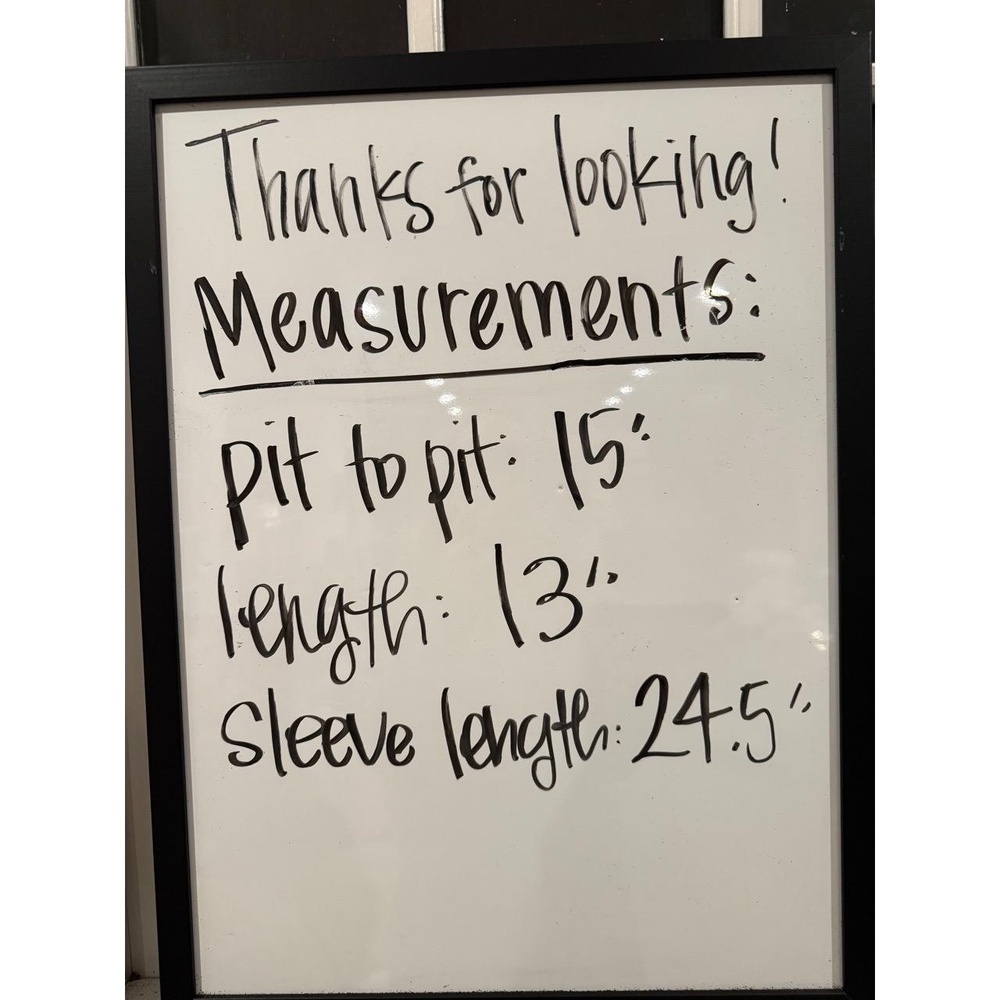 Thanks for looking!
Measurements:
pit to pit: 15"
length: 13"
sleeve length: 24.5"